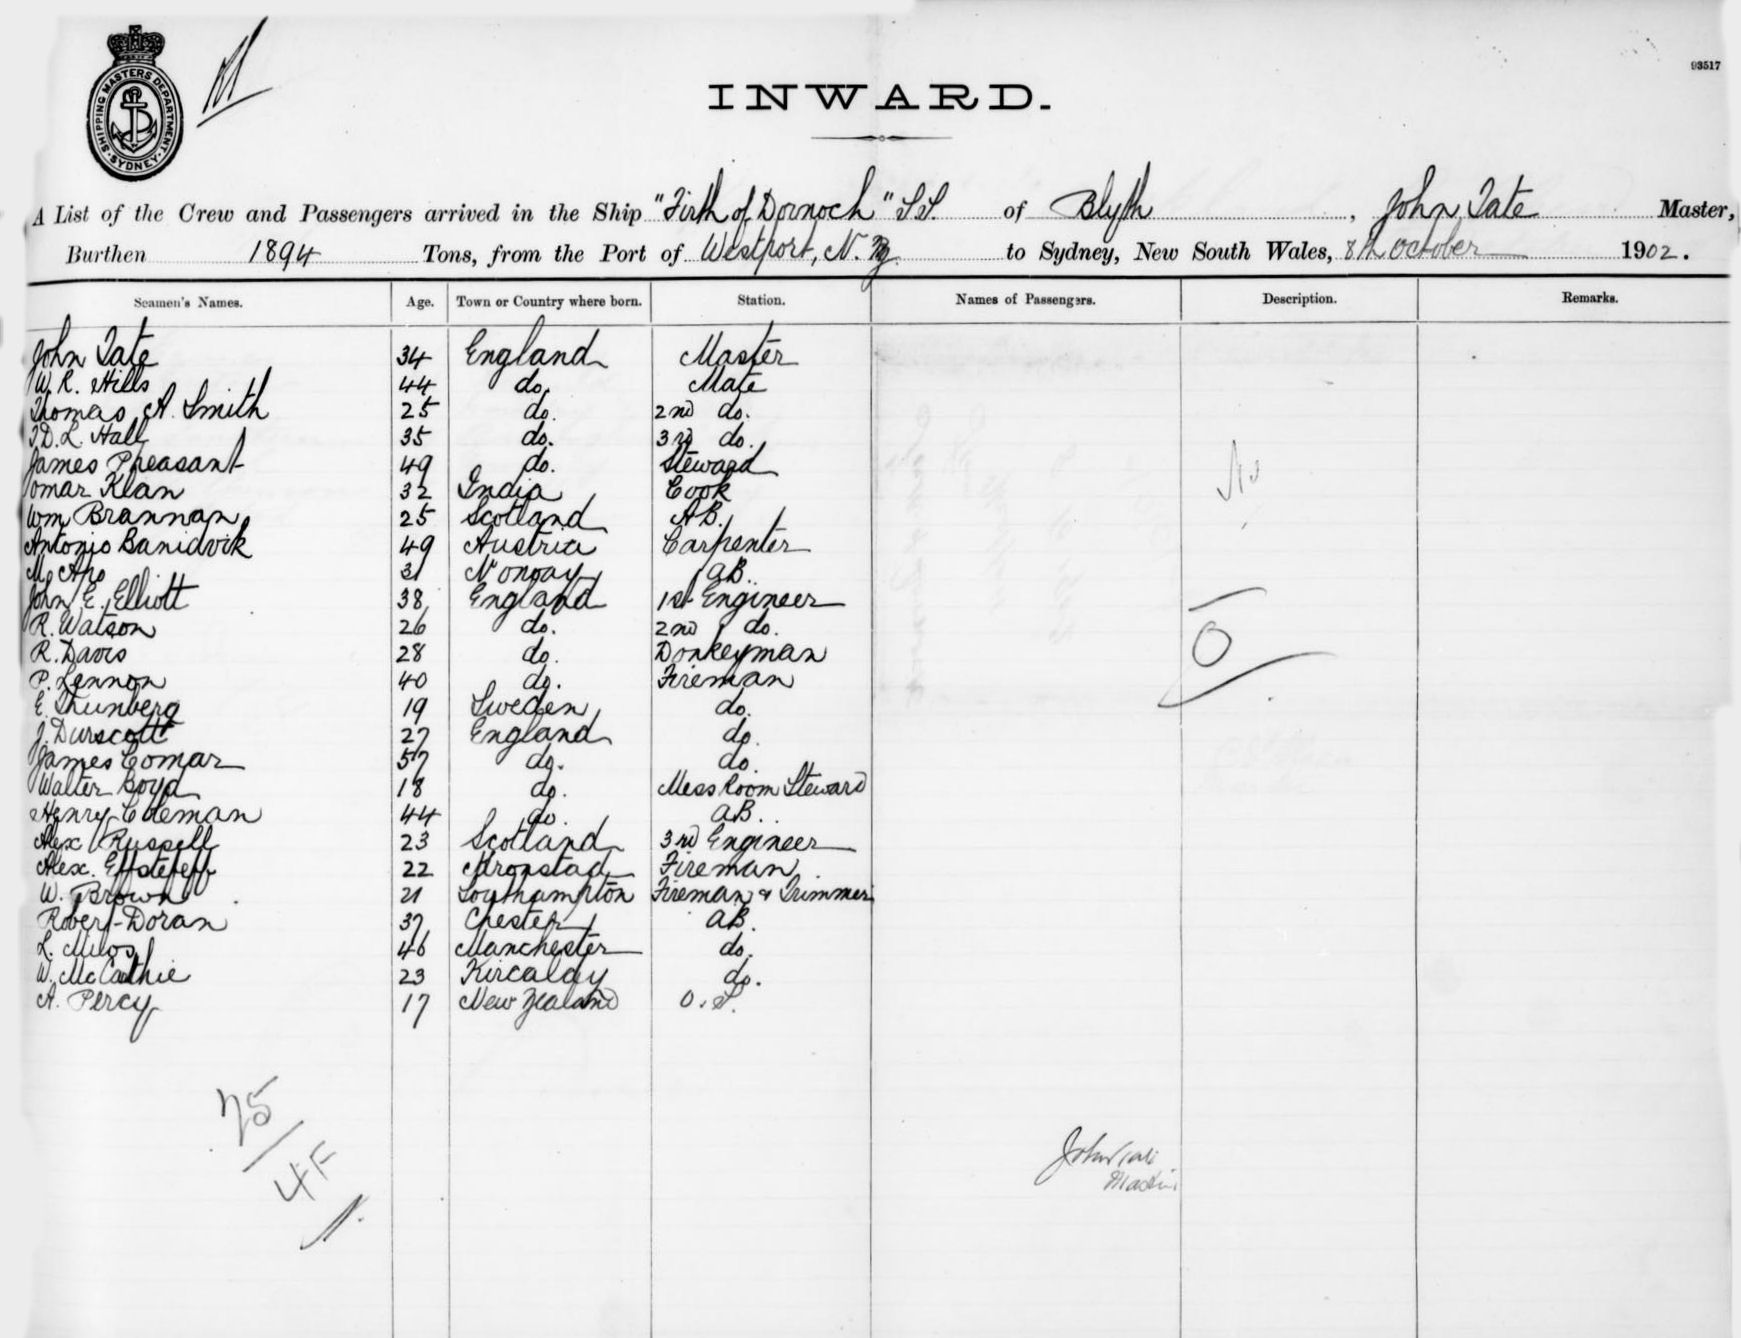 SHIPPING MASTERS DEPARTMENT. SYDNEY.
93517
INWARD.
A List of the Crew and Passengers arrived in the Ship "Firth of Dornoch" S.S. of Blyth, John Tate Master,
Burthen 1894 Tons, from the Port of Westport, N.Z. to Sydney, New South Wales, 8th October 1902.
Seamen's Names. Age. Town or Country where born. Station. Names of Passengers. Description. Remarks.
John Tate 34 England Master
W. R. Hills 44 do. Mate
Thomas A. Smith 25 do. 2nd do.
T.D.L. Hall 35 do. 3rd do.
James Pheasant 49 do. Steward
Omar Klan 32 India Cook
Wm Brannan 25 Scotland AB.
Antonio Banidvik 49 Austria Carpenter
31 Norway AB.
John E. Elliott 38 England 1st Engineer
R. Watson 26 do. 2nd do.
R. Davis 28 do. Donkeyman
P. Lennon 40 do. Fireman
E. Thunberg 19 Sweden do.
J. Durscott 27 England do.
James Comar 57 do. do.
Walter Boyd 18 do. Mess Room Steward
Henry Coleman 44 do. AB.
Alex Russell 23 Scotland 3rd Engineer
Alex. 22 Kronstad Fireman
W. Brown 21 Southampton Fireman & Trimmer
Robert Doran 37 Chester AB.
L. 46 Manchester do.
W. McCathie 23 Kircalay do.
A. Percy 17 New Zealand O.S.
25
4F
John Tate
Master